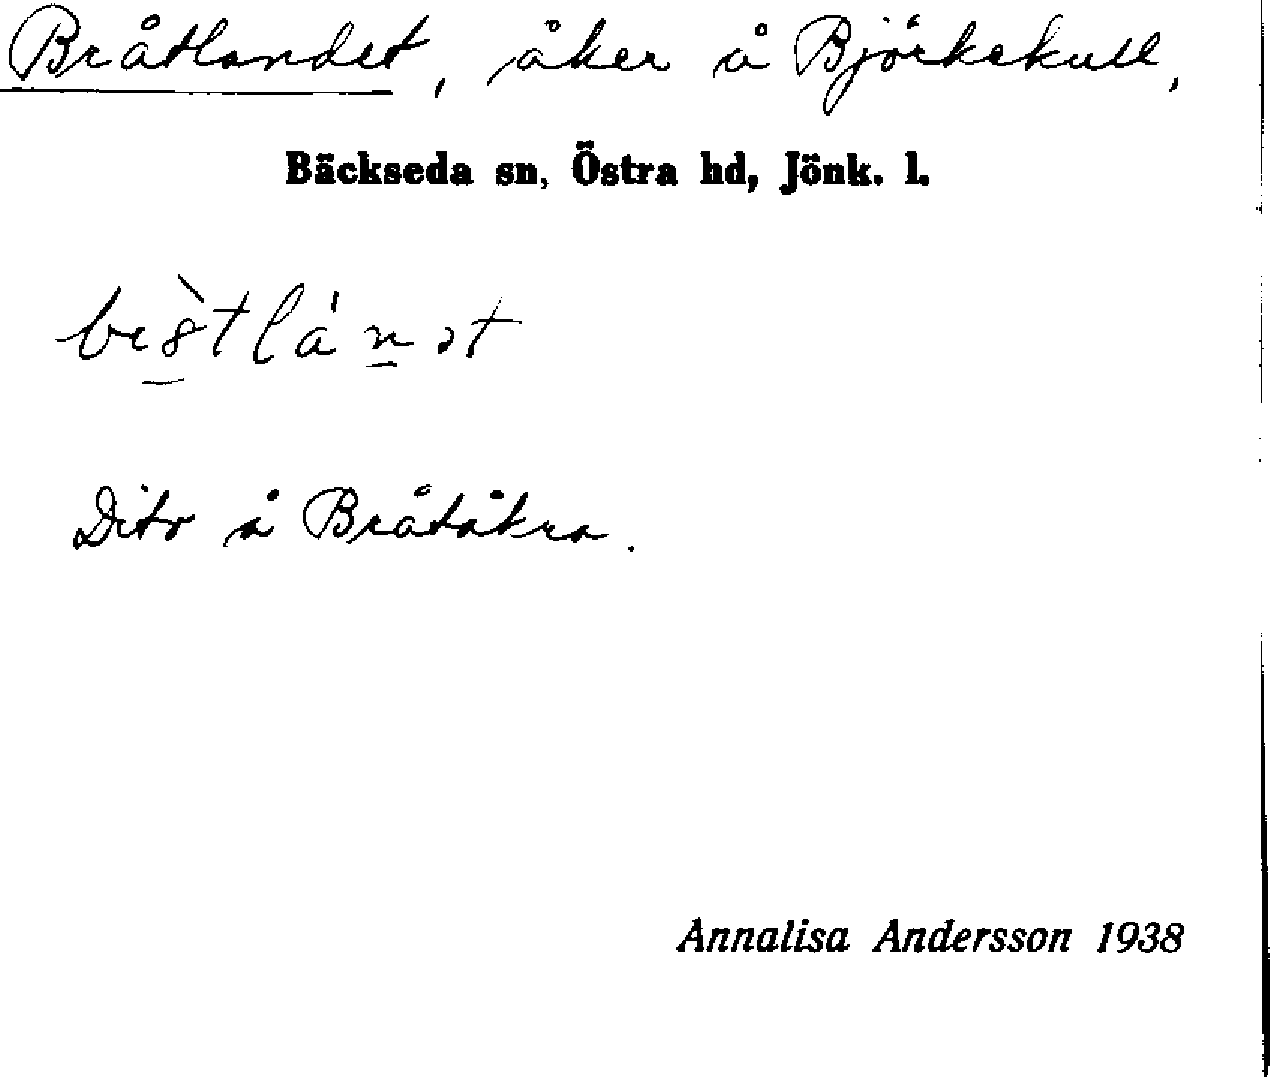 Bråtlandet, åker å Björkekull,
Bäckseda sn, Östra hd, Jönk. l.
Dito å Bråtåkra.
Annalisa Andersson 1938